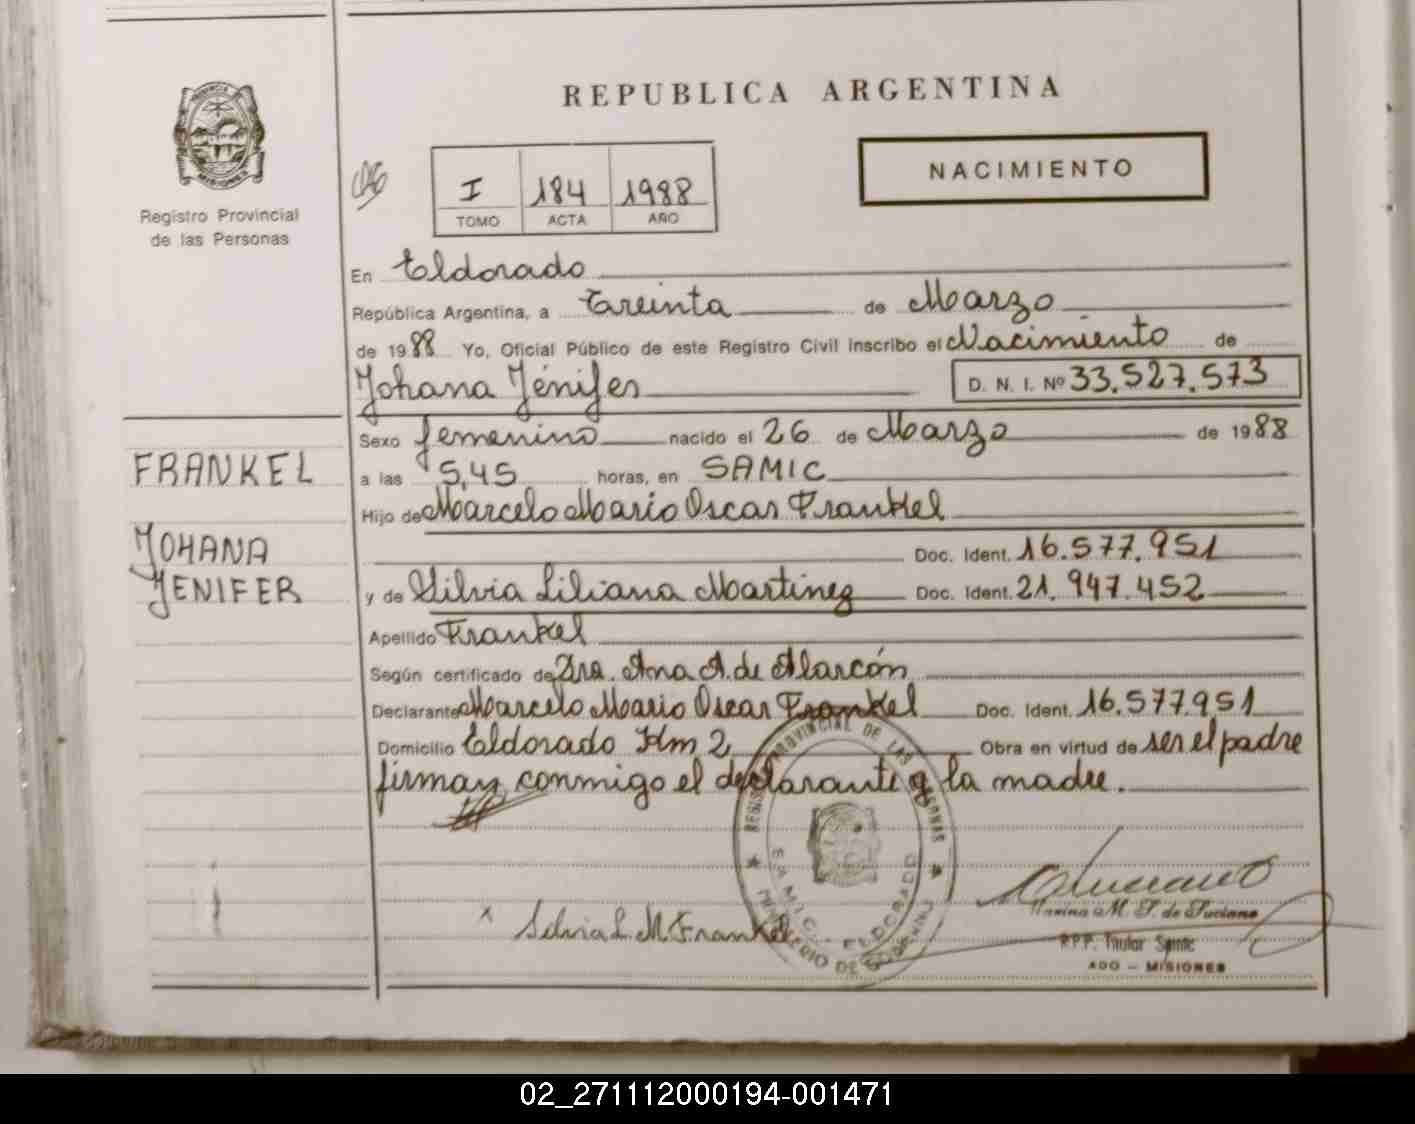 REPUBLICA ARGENTINA
PROVINCIA DE MISIONES
Registro Provincial
de las Personas
I 184 1988
TOMO ACTA AÑO
NACIMIENTO
En Eldorado
República Argentina, a Treinta de Marzo
de 1988 Yo, Oficial Público de este Registro Civil inscribo el Nacimiento de
Johana Jénifer D. N. I. Nº 33.527.573
Sexo femenino nacido el 26 de Marzo de 1988
FRANKEL
a las 5,45 horas, en SAMIC
Hijo de Marcelo Mario Oscar Frankel
JOHANA
JENIFER
Doc. Ident. 16.577.951
y de Silvia Liliana Martinez Doc. Ident. 21.947.452
Apellido Frankel
Según certificado de Dra. Ana A. de Alarcón
Declarante Marcelo Mario Oscar Frankel Doc. Ident. 16.577.951
Domicilio Eldorado Km 2 Obra en virtud de ser el padre
firman conmigo el declarante y la madre.
REGISTRO PROVINCIAL DE LAS PERSONAS
S.A.M.I.C. ELDORADO
MINISTERIO DE GOBIERNO
x Silvia L. M Frankel
Marina M. F. de Luciano
R.P.P. Titular
ADO - MISIONES
02_271112000194-001471